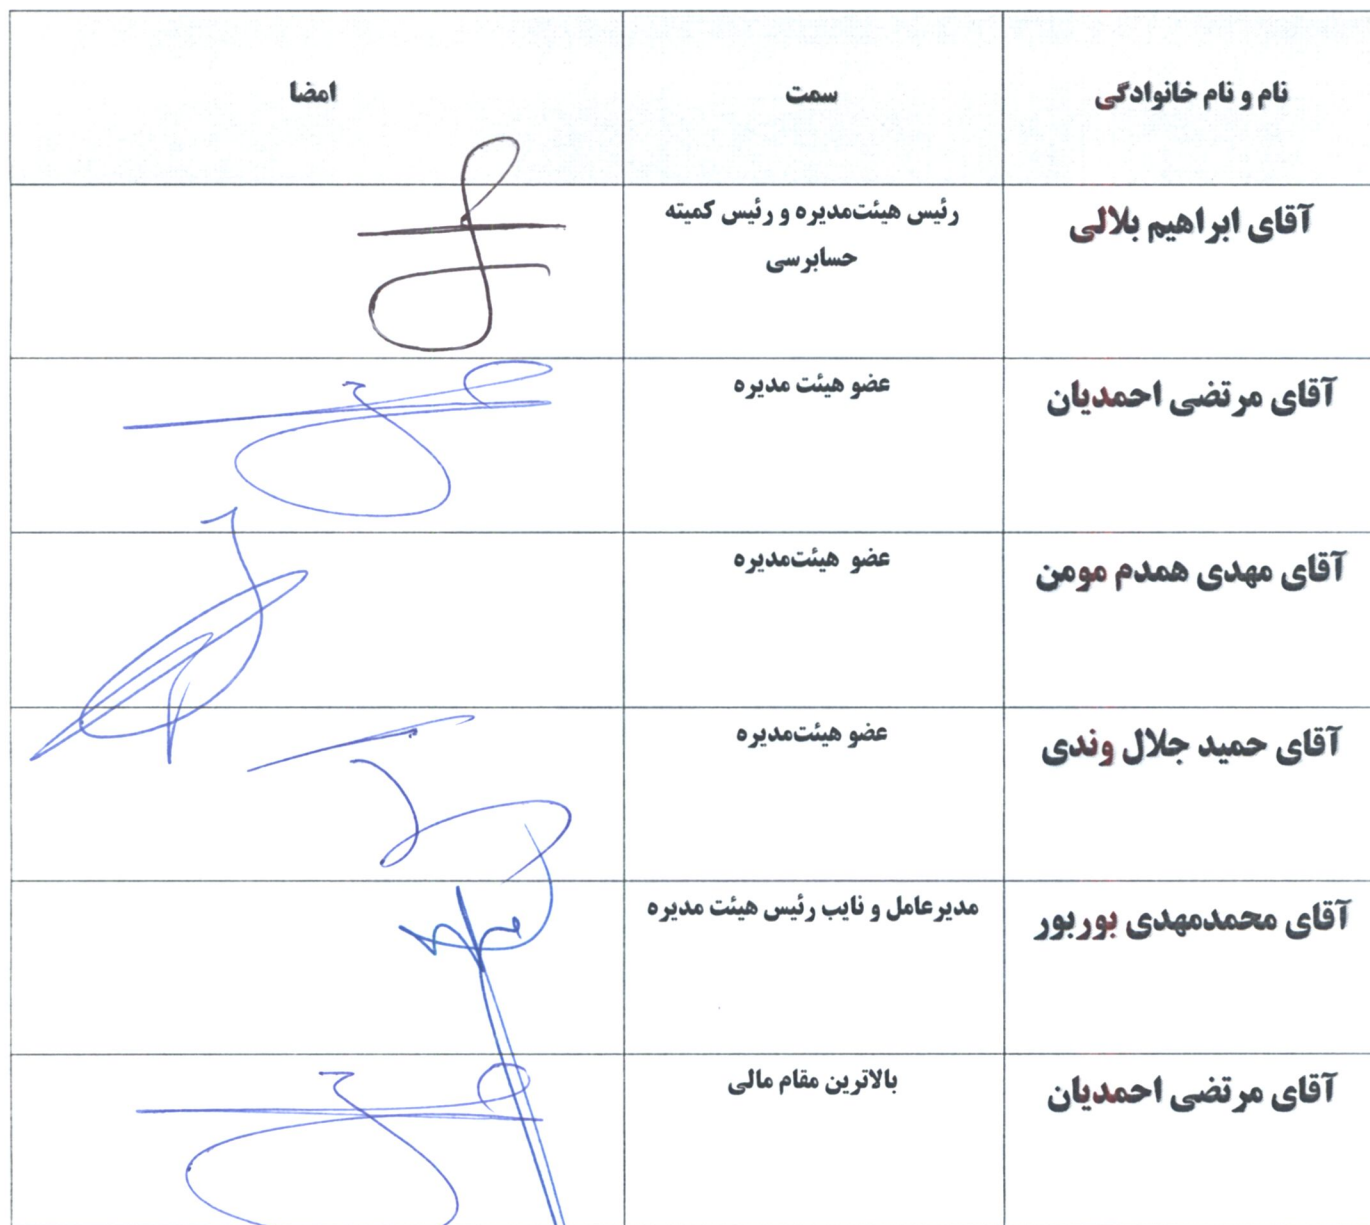 نام و نام خانوادگی سمت امضا
آقای ابراهیم بلالی رئیس هیئت‌مدیره و رئیس کمیته
حسابرسی
آقای مرتضی احمدیان عضو هیئت مدیره
آقای مهدی همدم مومن عضو هیئت‌مدیره
آقای حمید جلال وندی عضو هیئت‌مدیره
آقای محمدمهدی بوربور مدیرعامل و نایب رئیس هیئت مدیره
آقای مرتضی احمدیان بالاترین مقام مالی